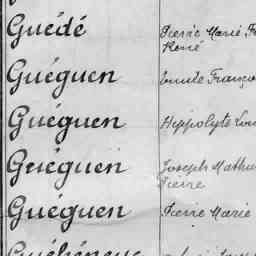 Guédé Pierre Marie
René
Guéguen Emile Franço
Guéguen Hippolyte Loui
Guéguen Joseph Mathu
Pierre
Guéguen Pierre Marie